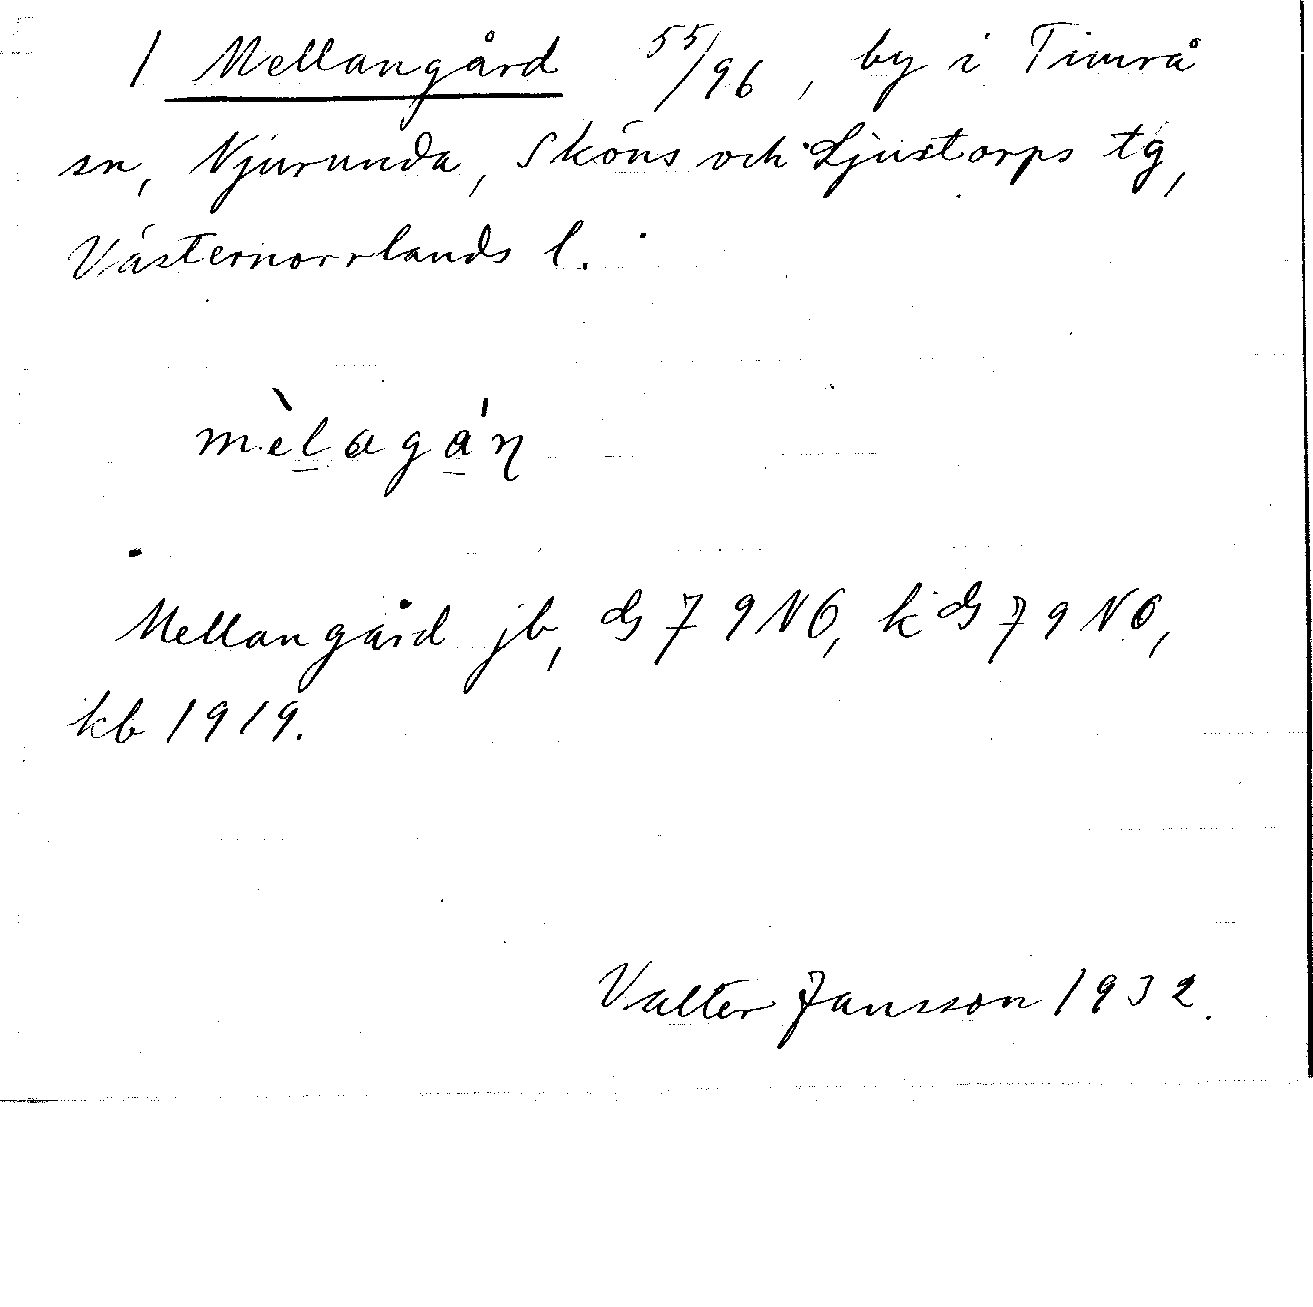 1 Mellangård 55/96, by i Timrå
sn, Njurunda, Sköns och Ljustorps tg,
Västernorrlands l.
mèlagáꞃ
Mellangård jb, ds 7 9 NO, kds 7 9 NO,
kb 1919.
Valter Jansson 1932.